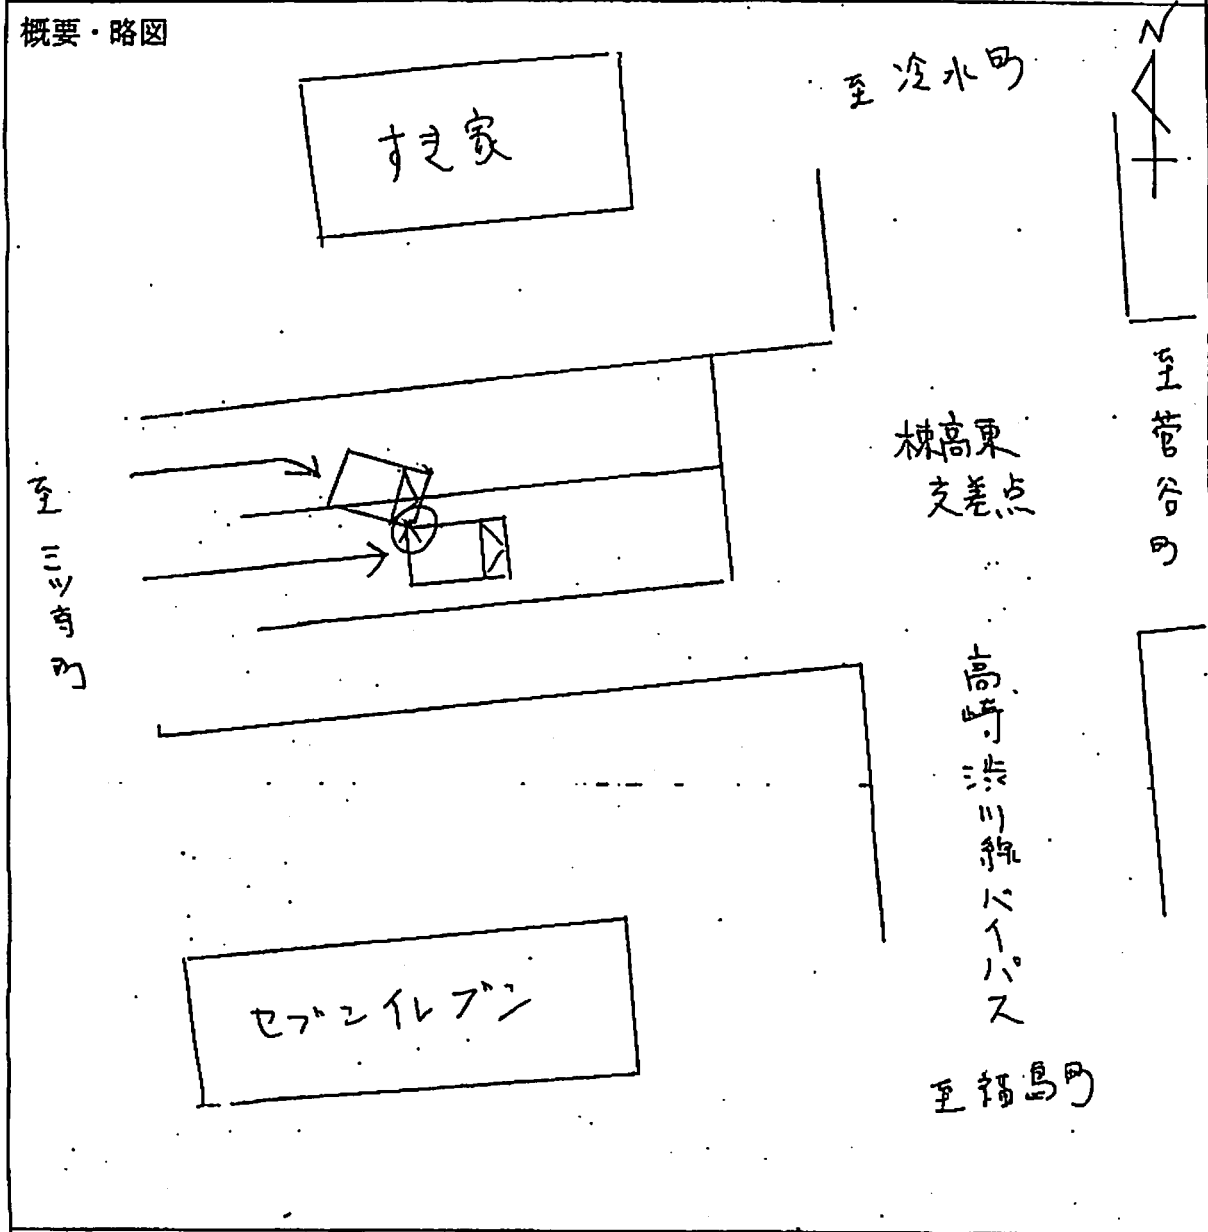 概要・略図
N
至 冷水町
すき家
至菅谷町
棟高東
交差点
至三ツ寺町
高崎渋川線バイパス
セブンイレブン
至福島町